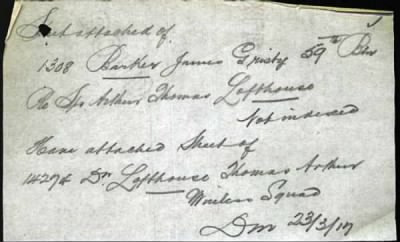 Sheet attached of
1308 Barker James Gristy 59th Btn
Re Dr Arthur Thomas Lofthouse
Not indexed
Have attached Sheet of
14274 Dr. Lofthouse Thomas Arthur
Wireless Squad
23/3/17